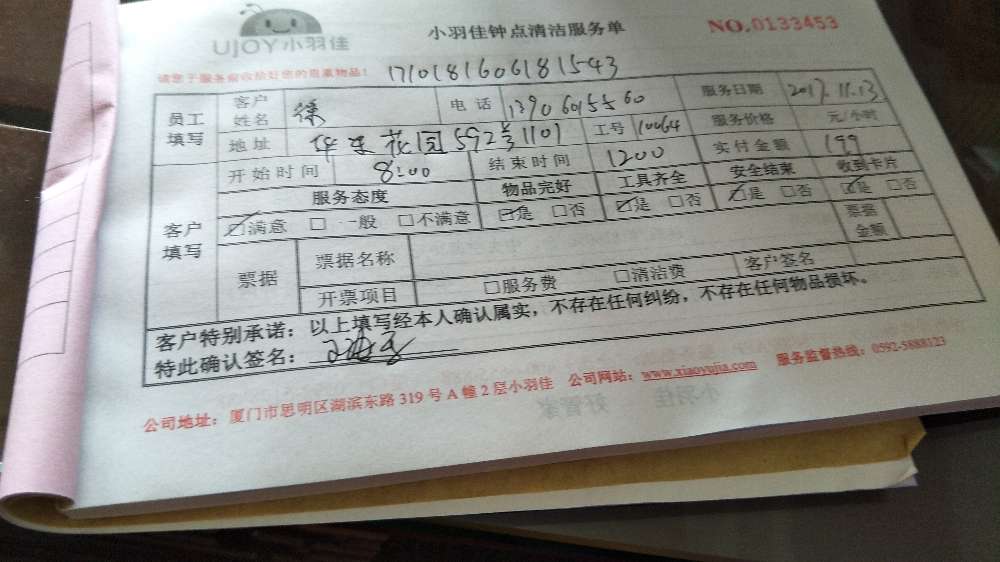 UJOY小羽佳
小羽佳钟点清洁服务单
NO.0133453
请您于服务前收拾好您的贵重物品!
1710181606181543
员工填写 客户姓名 徐 电话 13906015560 服务日期 2017.11.13
地址 花园592号1101 工号 10064 服务价格 元/小时
开始时间 8:00 结束时间 1200 实付金额 199
客户填写 服务态度 物品完好 工具齐全 安全结束 收到卡片
☑满意 □一般 □不满意 ☑是 □否 ☑是 □否 ☑是 □否 ☑是 □否
票据 票据名称 票据金额
开票项目 □服务费 □清洁费 客户签名
客户特别承诺：以上填写经本人确认属实，不存在任何纠纷，不存在任何物品损坏。
特此确认签名：
公司地址：厦门市思明区湖滨东路319号A幢2层小羽佳 公司网站：www.xiaoyujia.com 服务监督热线：0592-5888123